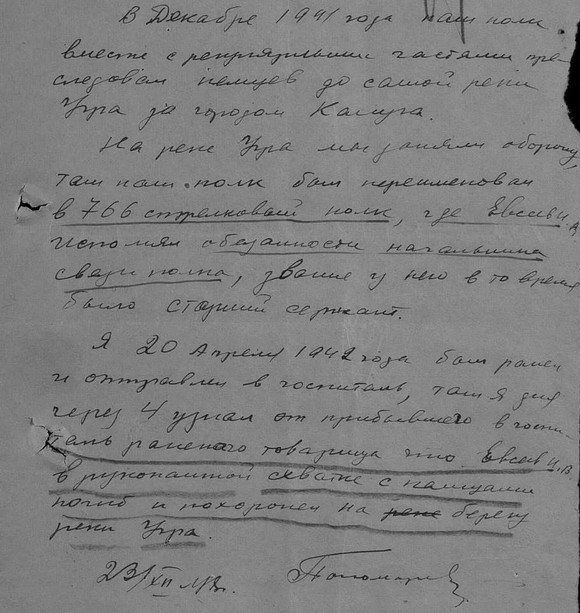 В Декабре 1941 года наш полк
вместе с регулярными частями пре-
следовал немцев до самой реки
Угра за городом Калуга.
На реке Угра мы заняли оборону,
там наш полк был переименован
в 766 стрелковый полк, где Евсеев И.А
исполнял обезанности начальника
связи полка, звание у него в то время
было старший сержант.
Я 20 Апреля 1942 года был ранен
и отправлен в госпиталь, там я дня
через 4 узнал от прибывшего в госпи-
таль раненого товарища что Евсеев И.А.
в рукопашной схватке с немцами
погиб и похоронен на реке берегу
реки Угра.
23/XII